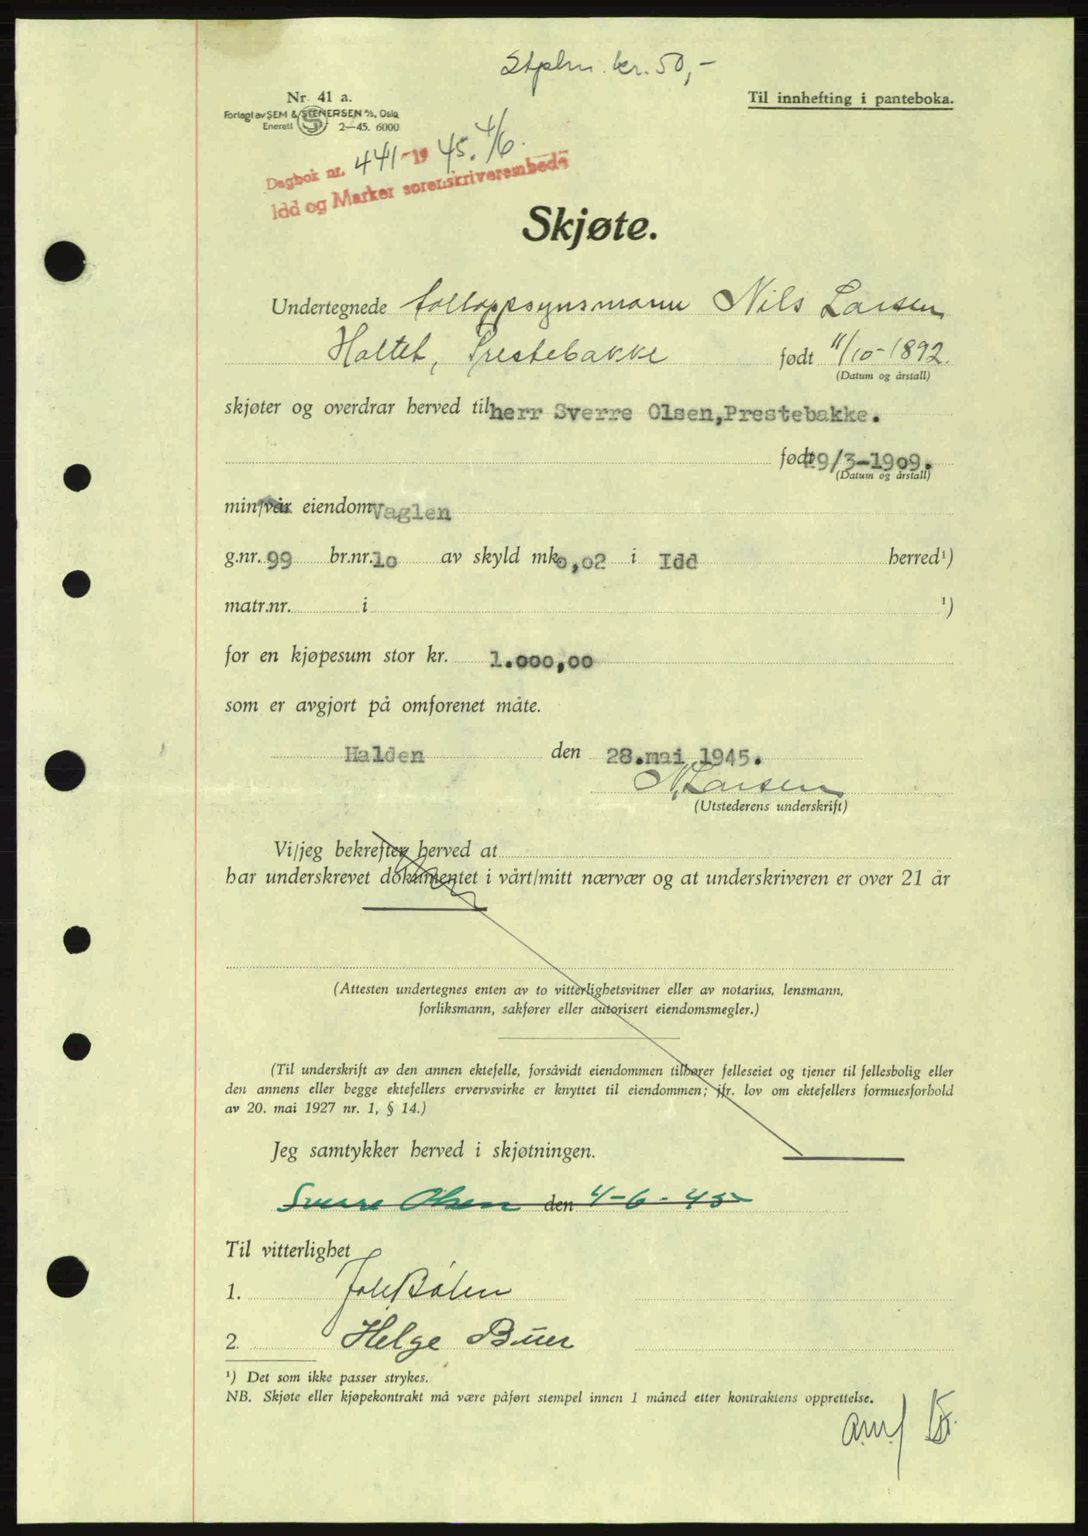 Stplm. kr. 50,-
Nr. 41 a.
Til innhefting i panteboka.
Forlagt av SEM & STENERSEN A/S, Oslo
Enerett 2—45. 6000
Dagbok nr. 441-1945. 4/6.
Idd og Marker sorenskriverembede
Skjøte.
Undertegnede tolloppsynsmann Nils Larsen
Holtet, Prestebakke født 11/10-1892.
(Datum og årstall)
skjøter og overdrar herved til herr Sverre Olsen,Prestebakke.
født 29/3-1909.
(Datum og årstall)
min/vår eiendom Vaglen
g.nr. 99 br.nr. 10 av skyld mk. 0,02 i Idd herred¹)
matr.nr. i ¹)
for en kjøpesum stor kr. 1.000,00
som er avgjort på omforenet måte.
Halden den 28.mai 1945.
N. Larsen
(Utstederens underskrift)
Vi/jeg bekrefter herved at
har underskrevet dokumentet i vårt/mitt nærvær og at underskriveren er over 21 år
(Attesten undertegnes enten av to vitterlighetsvitner eller av notarius, lensmann,
forliksmann, sakfører eller autorisert eiendomsmegler.)
(Til underskrift av den annen ektefelle, forsåvidt eiendommen tilhører felleseiet og tjener til fellesbolig eller
den annens eller begge ektefellers ervervsvirke er knyttet til eiendommen; jfr. lov om ektefellers formuesforhold
av 20. mai 1927 nr. 1, § 14.)
Jeg samtykker herved i skjøtningen.
Sverre Olsen den 4-6-45
Til vitterlighet
1.
2. Helge Buer
¹) Det som ikke passer strykes.
NB. Skjøte eller kjøpekontrakt må være påført stempel innen 1 måned etter kontraktens opprettelse.